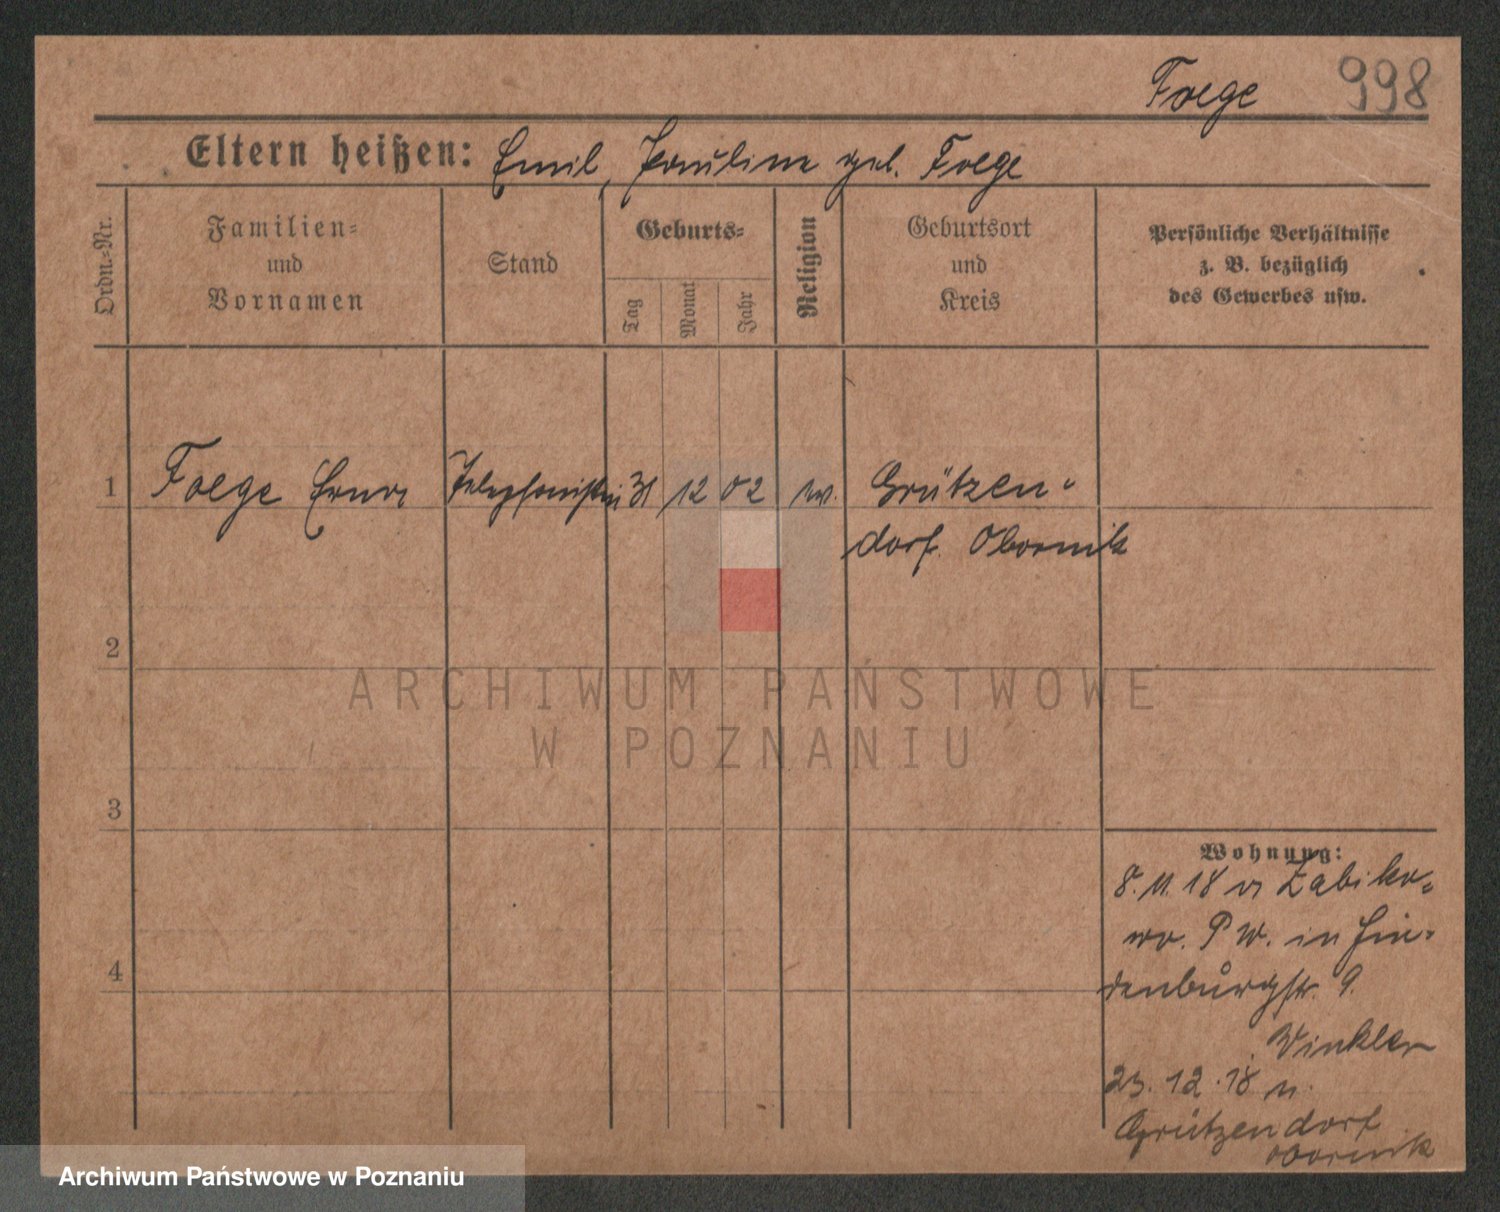 Foege 998
Eltern heißen: Emil, Pauline geb. Foege
Ordn.=Nr.
Familien=
und
Vornamen
Stand
Geburts=
Tag
Monat
Jahr
Religion
Geburtsort
und
Kreis
Persönliche Verhältnisse
z. B. bezüglich
des Gewerbes usw.
1 Foege Erna Telephonistin 31 12 02 ev. Grützen-
dorf. Obornik
2
3
4
Wohnung:
8. 11. 18 v Zabiko=
wo. P W. in Hin-
denburgstr. 9.
Winkler
23. 12. 18 n.
Grützendorf
Obornik
ARCHIWUM PAŃSTWOWE
W POZNANIU
Archiwum Państwowe w Poznaniu